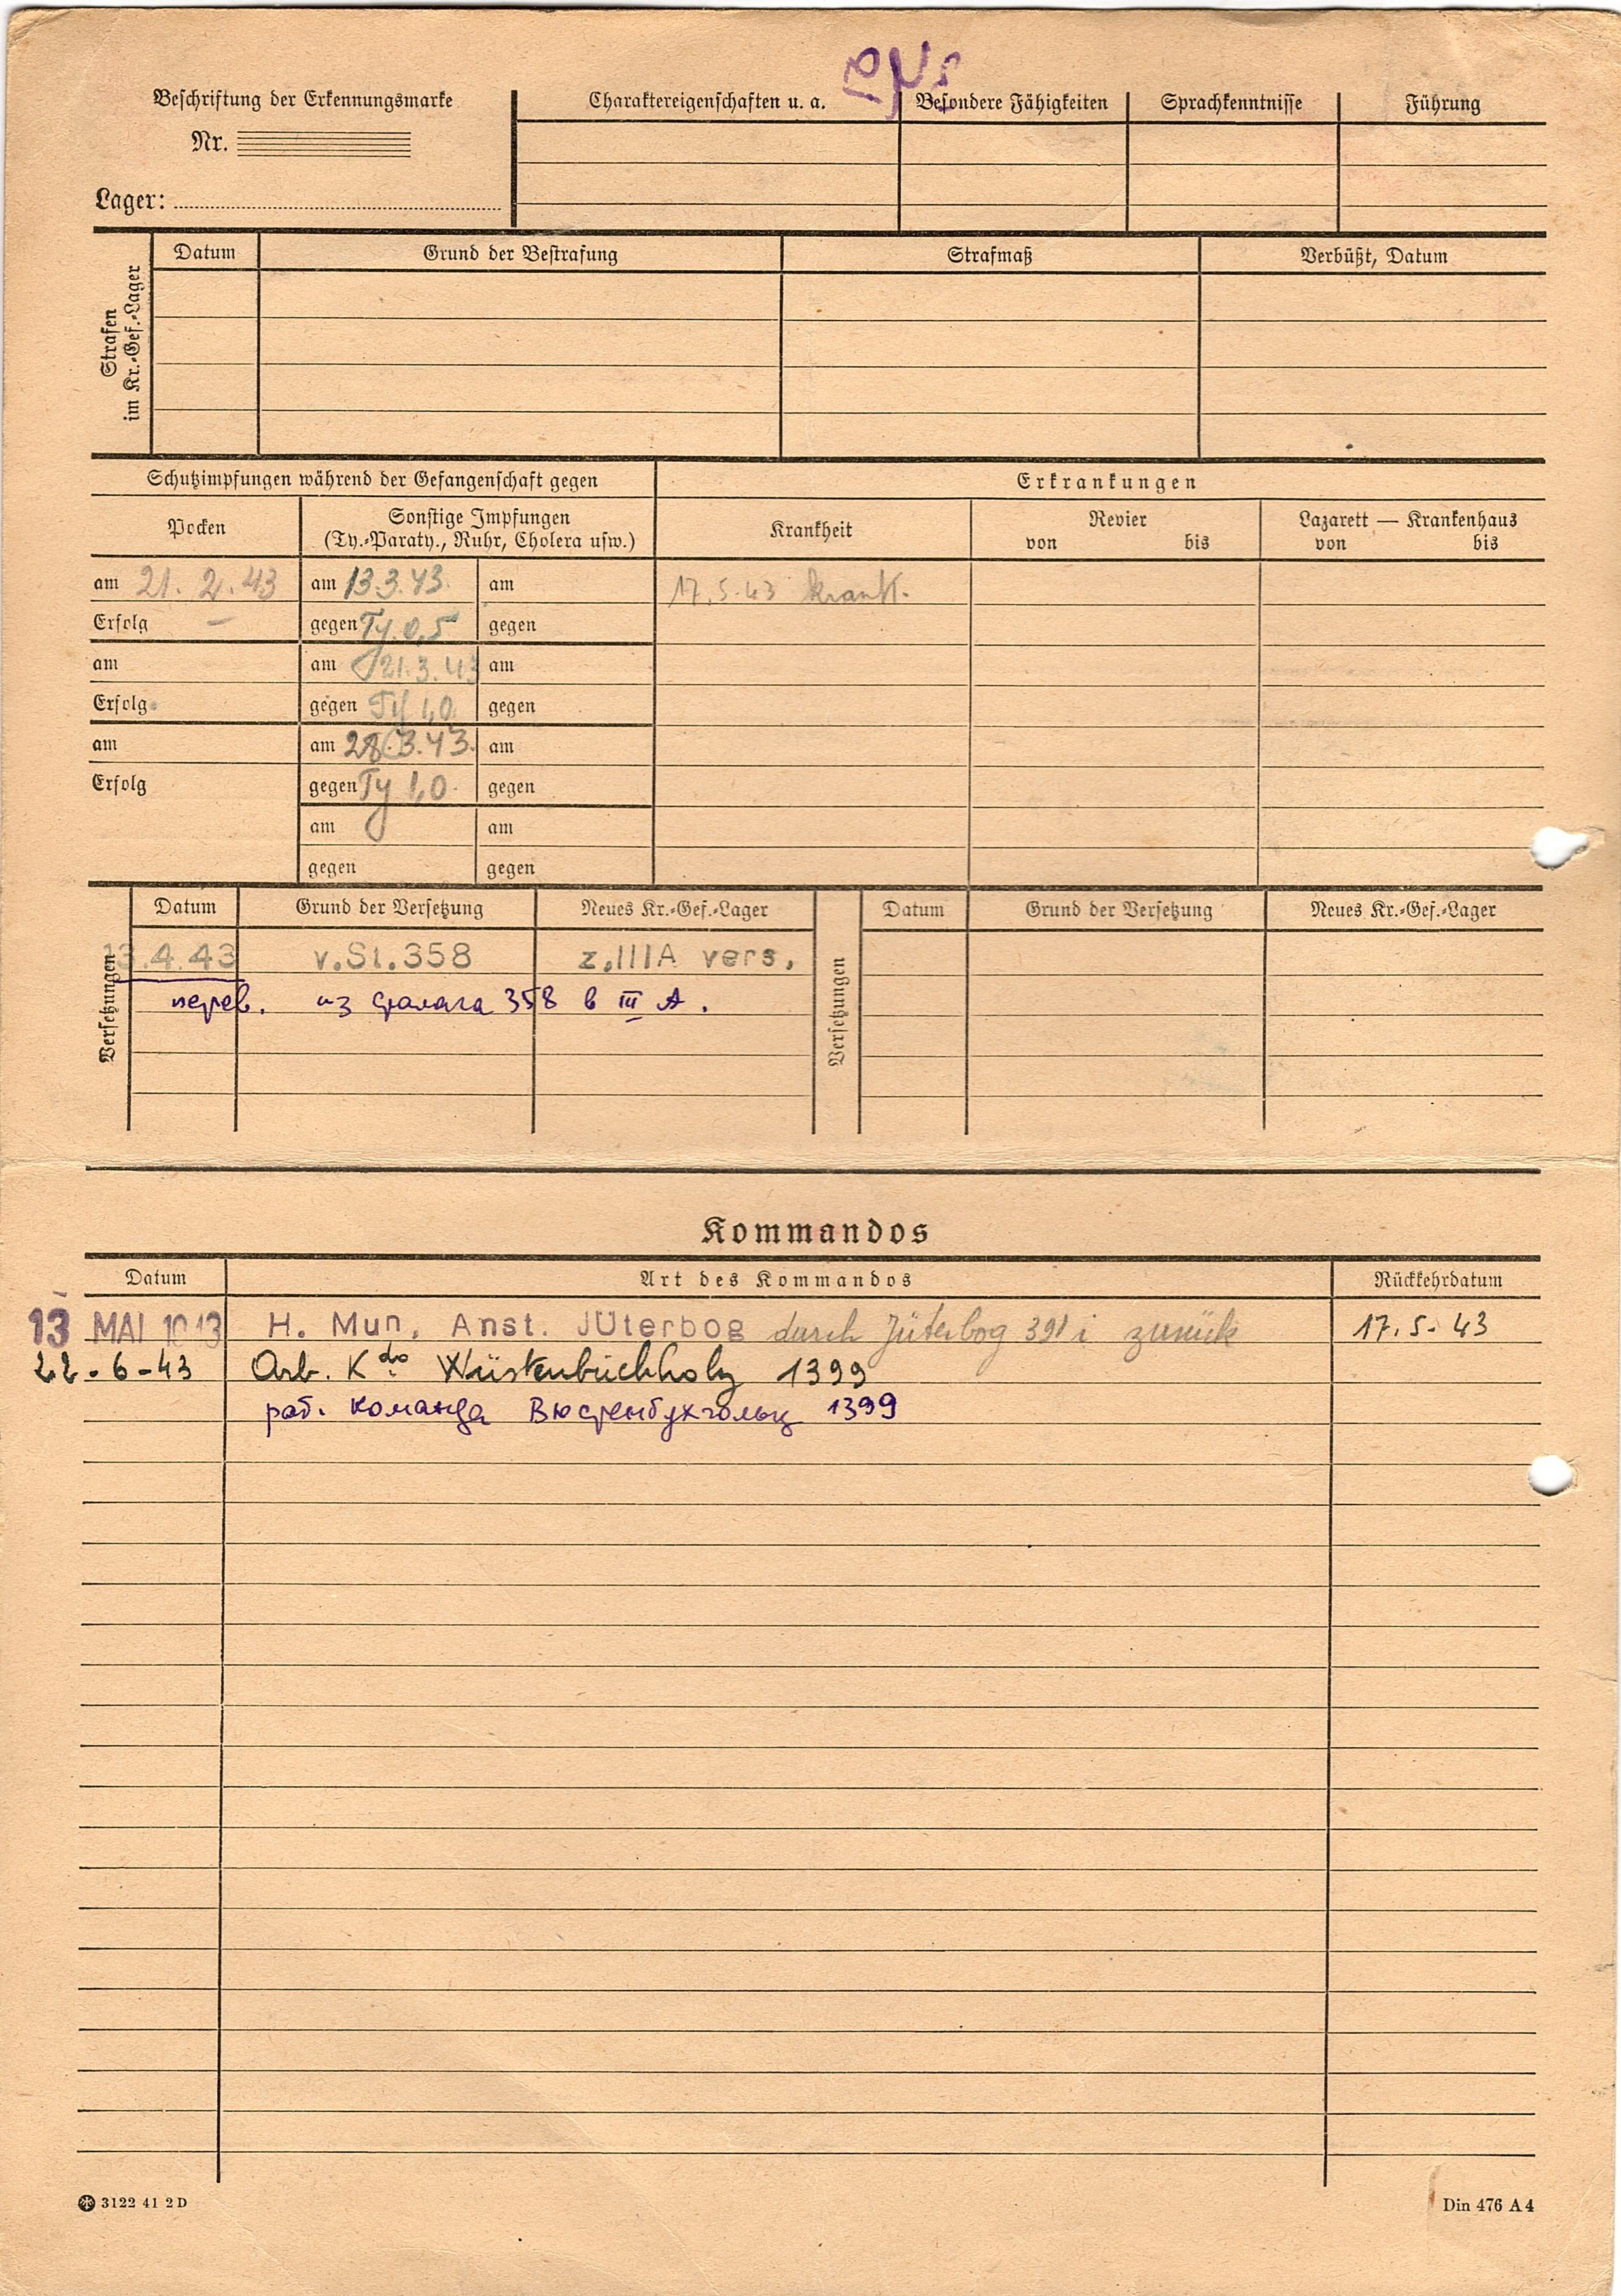 Beschriftung der Erkennungsmarke
Nr.
Lager:
Charaktereigenschaften u. a. Besondere Fähigkeiten Sprachkenntnisse Führung
Strafen im Kr.-Gef.-Lager
Datum Grund der Bestrafung Strafmaß Verbüßt, Datum
Schutzimpfungen während der Gefangenschaft gegen Erkrankungen
Pocken Sonstige Impfungen Krankheit Revier Lazarett — Krankenhaus
(Ty.-Paraty., Ruhr, Cholera usw.) von bis von bis
am 21. 2. 43 am 13.3.43. am 17.5.43 krank.
Erfolg – gegen Ty. 0,5 gegen
am am 21.3.43 am
Erfolg gegen Ty 1,0 gegen
am am 28.3.43. am
Erfolg gegen Ty 1,0. gegen
am am
gegen gegen
Versetzungen Datum Grund der Versetzung Neues Kr.-Gef.-Lager Versetzungen Datum Grund der Versetzung Neues Kr.-Gef.-Lager
13.4.43 v.St.358 z.IIIA vers.
перев. из сталага 358 в III А.
Kommandos
Datum Art des Kommandos Rückkehrdatum
13 MAI H. Mun. Anst. JÜterbog durch Jüterbog 391 i zurück 17.5-43
22-6-43 Arb. Kdo Wüstenbuchholz 1399
раб. команда Вюстенбухгольц 1399
3122 41 2 D Din 476 A 4